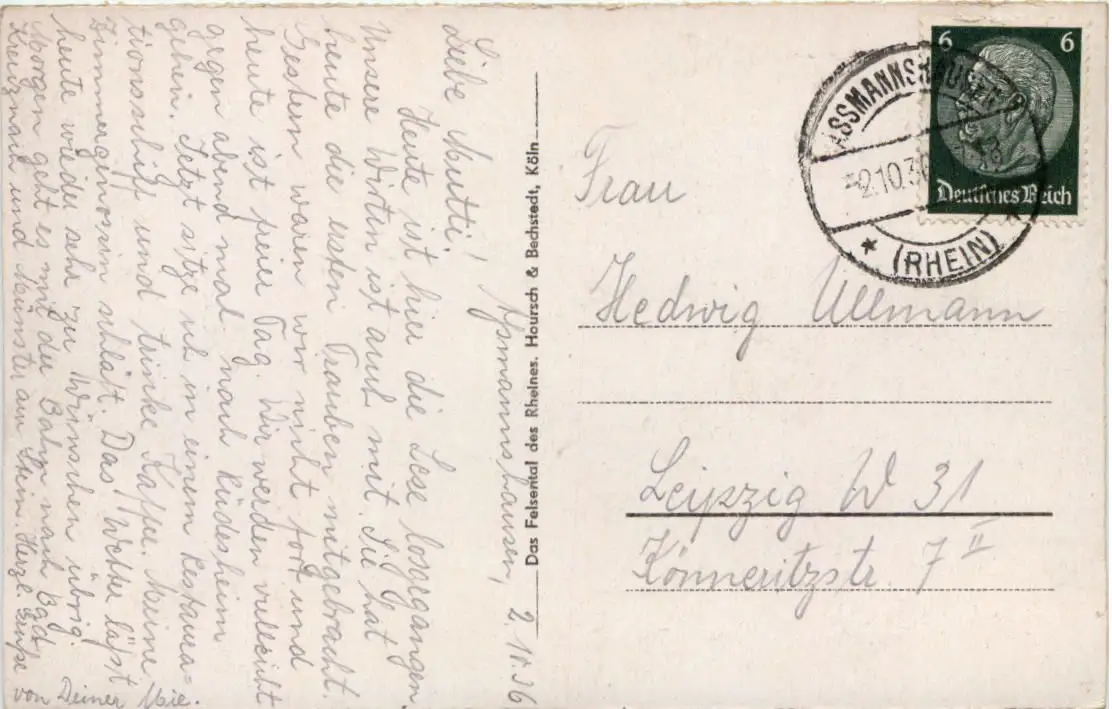 Assmannshausen, 2.10.36
Liebe Mutti!
Heute ist hier die Lese losgegangen
Unsere Wirtin ist auch mit. Sie hat
heute die ersten Trauben mitgebracht.
Gestern waren wir nicht fort und
heute ist freier Tag. Wir werden vielleicht
gegen abend mal nach Rüdesheim
gehen. Jetzt sitze ich in einem Restaura=
tionsschiff und trinke Kaffee. Meine
Zimmergenossin schläft. Das Wetter läßt
heute wieder sehr zu wünschen übrig.
Morgen geht es mit der Bahn nach Bad
Kreuznach und Münster am Stein. Herzl. Grüße
von Deiner Mie.
Das Felsental des Rheines. Hoursch & Bechstedt, Köln
6 6
Deutsches Reich
ASSMANNSHAUSEN
2.10.36
(RHEIN)
Frau
Hedwig Ullmann
Leipzig W 31
Könneritzstr. 7 II